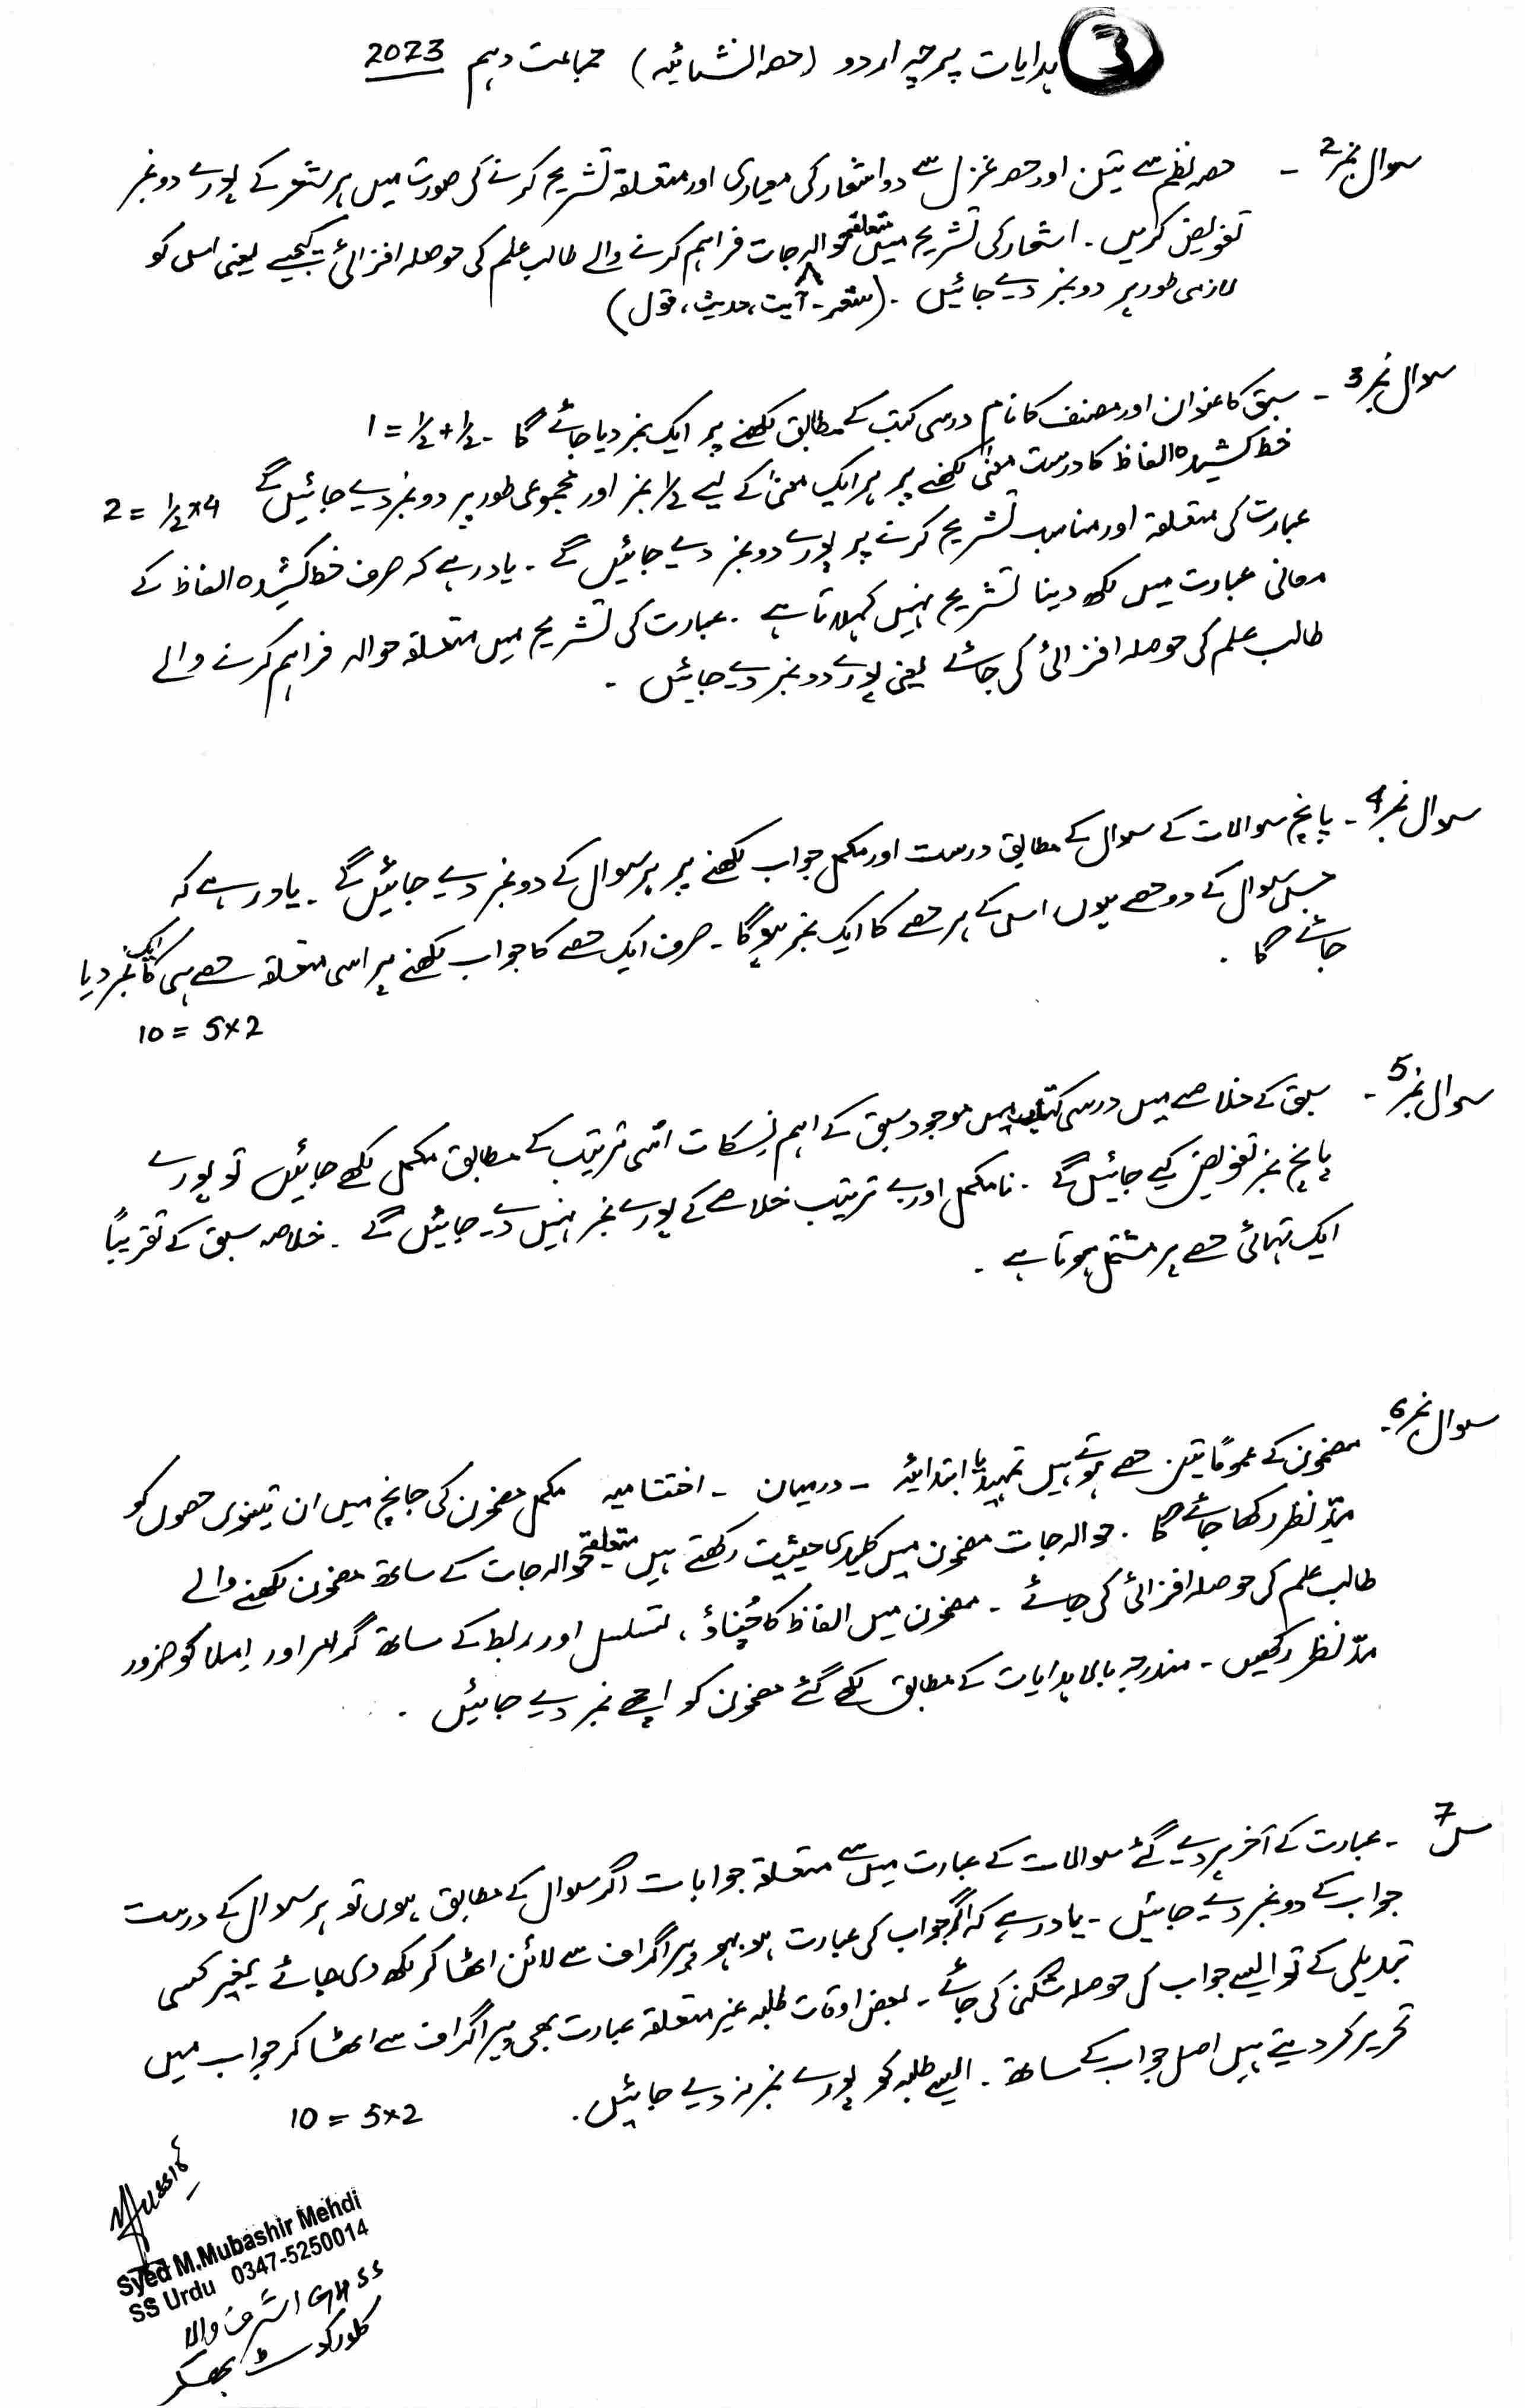 3 ہدایات پرچہ اردو (حصہ انشائیہ) جماعت دہم 2023
سوال نمبر 2 - حصہ نظم سے تین اور حصہ غزل سے دو اشعار کی معیاری اور متعلقہ تشریح کرنے کی صورت میں ہر شعر کے پورے دو نمبر
تفویض کریں۔ اشعار کی تشریح میں متعلقہ حوالہ جات فراہم کرنے والے طالب علم کی حوصلہ افزائی کیجیے یعنی اس کو
لازمی طور پر دو نمبر دیے جائیں۔ (شعر۔ آیت، حدیث، قول)
سوال نمبر 3 - سبق کا عنوان اور مصنف کا نام درسی کتب کے مطابق لکھنے پر ایک نمبر دیا جائے گا - ½+½ = 1
خط کشیدہ الفاظ کا درست معنیٰ لکھنے پر ہر ایک معنیٰ کے لیے ½ نمبر اور مجموعی طور پر دو نمبر دیے جائیں گے 4×½ = 2
عبارت کی متعلقہ اور مناسب تشریح کرنے پر پورے دو نمبر دیے جائیں گے۔ یاد رہے کہ صرف خط کشیدہ الفاظ کے
معانی عبارت میں لکھ دینا تشریح نہیں کہلاتا ہے۔ عبارت کی تشریح میں متعلقہ حوالہ فراہم کرنے والے
طالب علم کی حوصلہ افزائی کی جائے یعنی پورے دو نمبر دیے جائیں۔
سوال نمبر 4 - پانچ سوالات کے سوال کے مطابق درست اور مکمل جواب لکھنے پر ہر سوال کے دو نمبر دیے جائیں گے۔ یاد رہے کہ
جس سوال کے دو حصے ہوں اس کے ہر حصے کا ایک نمبر ہوگا۔ صرف ایک حصے کا جواب لکھنے پر اسی متعلقہ حصے ہی کا ایک نمبر دیا
جائے گا۔
10 = 5×2
سوال نمبر 5 - سبق کے خلاصے میں درسی کتاب میں موجود سبق کے اہم نکات اسی ترتیب کے مطابق مکمل لکھے جائیں تو پورے
پانچ نمبر تفویض کیے جائیں گے۔ نامکمل اور بے ترتیب خلاصے کے پورے نمبر نہیں دیے جائیں گے۔ خلاصہ سبق کے تقریباً
ایک تہائی حصے پر مشتمل ہوتا ہے۔
سوال نمبر 6 - مضمون کے عموماً تین حصے ہوتے ہیں تمہید یا ابتدائیہ - درمیان - اختتامیہ مکمل مضمون کی جانچ میں ان تینوں حصوں کو
مدِّنظر رکھا جائے گا۔ حوالہ جات مضمون میں کلیدی حیثیت رکھتے ہیں متعلقہ حوالہ جات کے ساتھ مضمون لکھنے والے
طالب علم کی حوصلہ افزائی کی جائے۔ مضمون میں الفاظ کا چُناؤ، تسلسل اور ربط کے ساتھ گرامر اور اِملا کو ضرور
مدِّنظر رکھیں۔ مندرجہ بالا ہدایات کے مطابق لکھے گئے مضمون کو اچھے نمبر دیے جائیں۔
س 7 - عبارت کے آخر پر دیے گئے سوالات کے عبارت میں سے متعلقہ جوابات اگر سوال کے مطابق ہوں تو ہر سوال کے درست
جواب کے دو نمبر دیے جائیں۔ یاد رہے کہ اگر جواب کی عبارت ہو بہو پیراگراف سے لائن اٹھا کر لکھ دی جائے بغیر کسی
تبدیلی کے تو ایسے جواب کی حوصلہ شکنی کی جائے۔ بعض اوقات طلبہ غیر متعلقہ عبارت بھی پیراگراف سے اٹھا کر جواب میں
تحریر کر دیتے ہیں اصل جواب کے ساتھ۔ ایسے طلبہ کو پورے نمبر نہ دیے جائیں۔
10 = 5×2
Syed M.Mubashir Mehdi
SS Urdu 0347-5250014
GHSS اشرف والا
کلورکوٹ بھکر